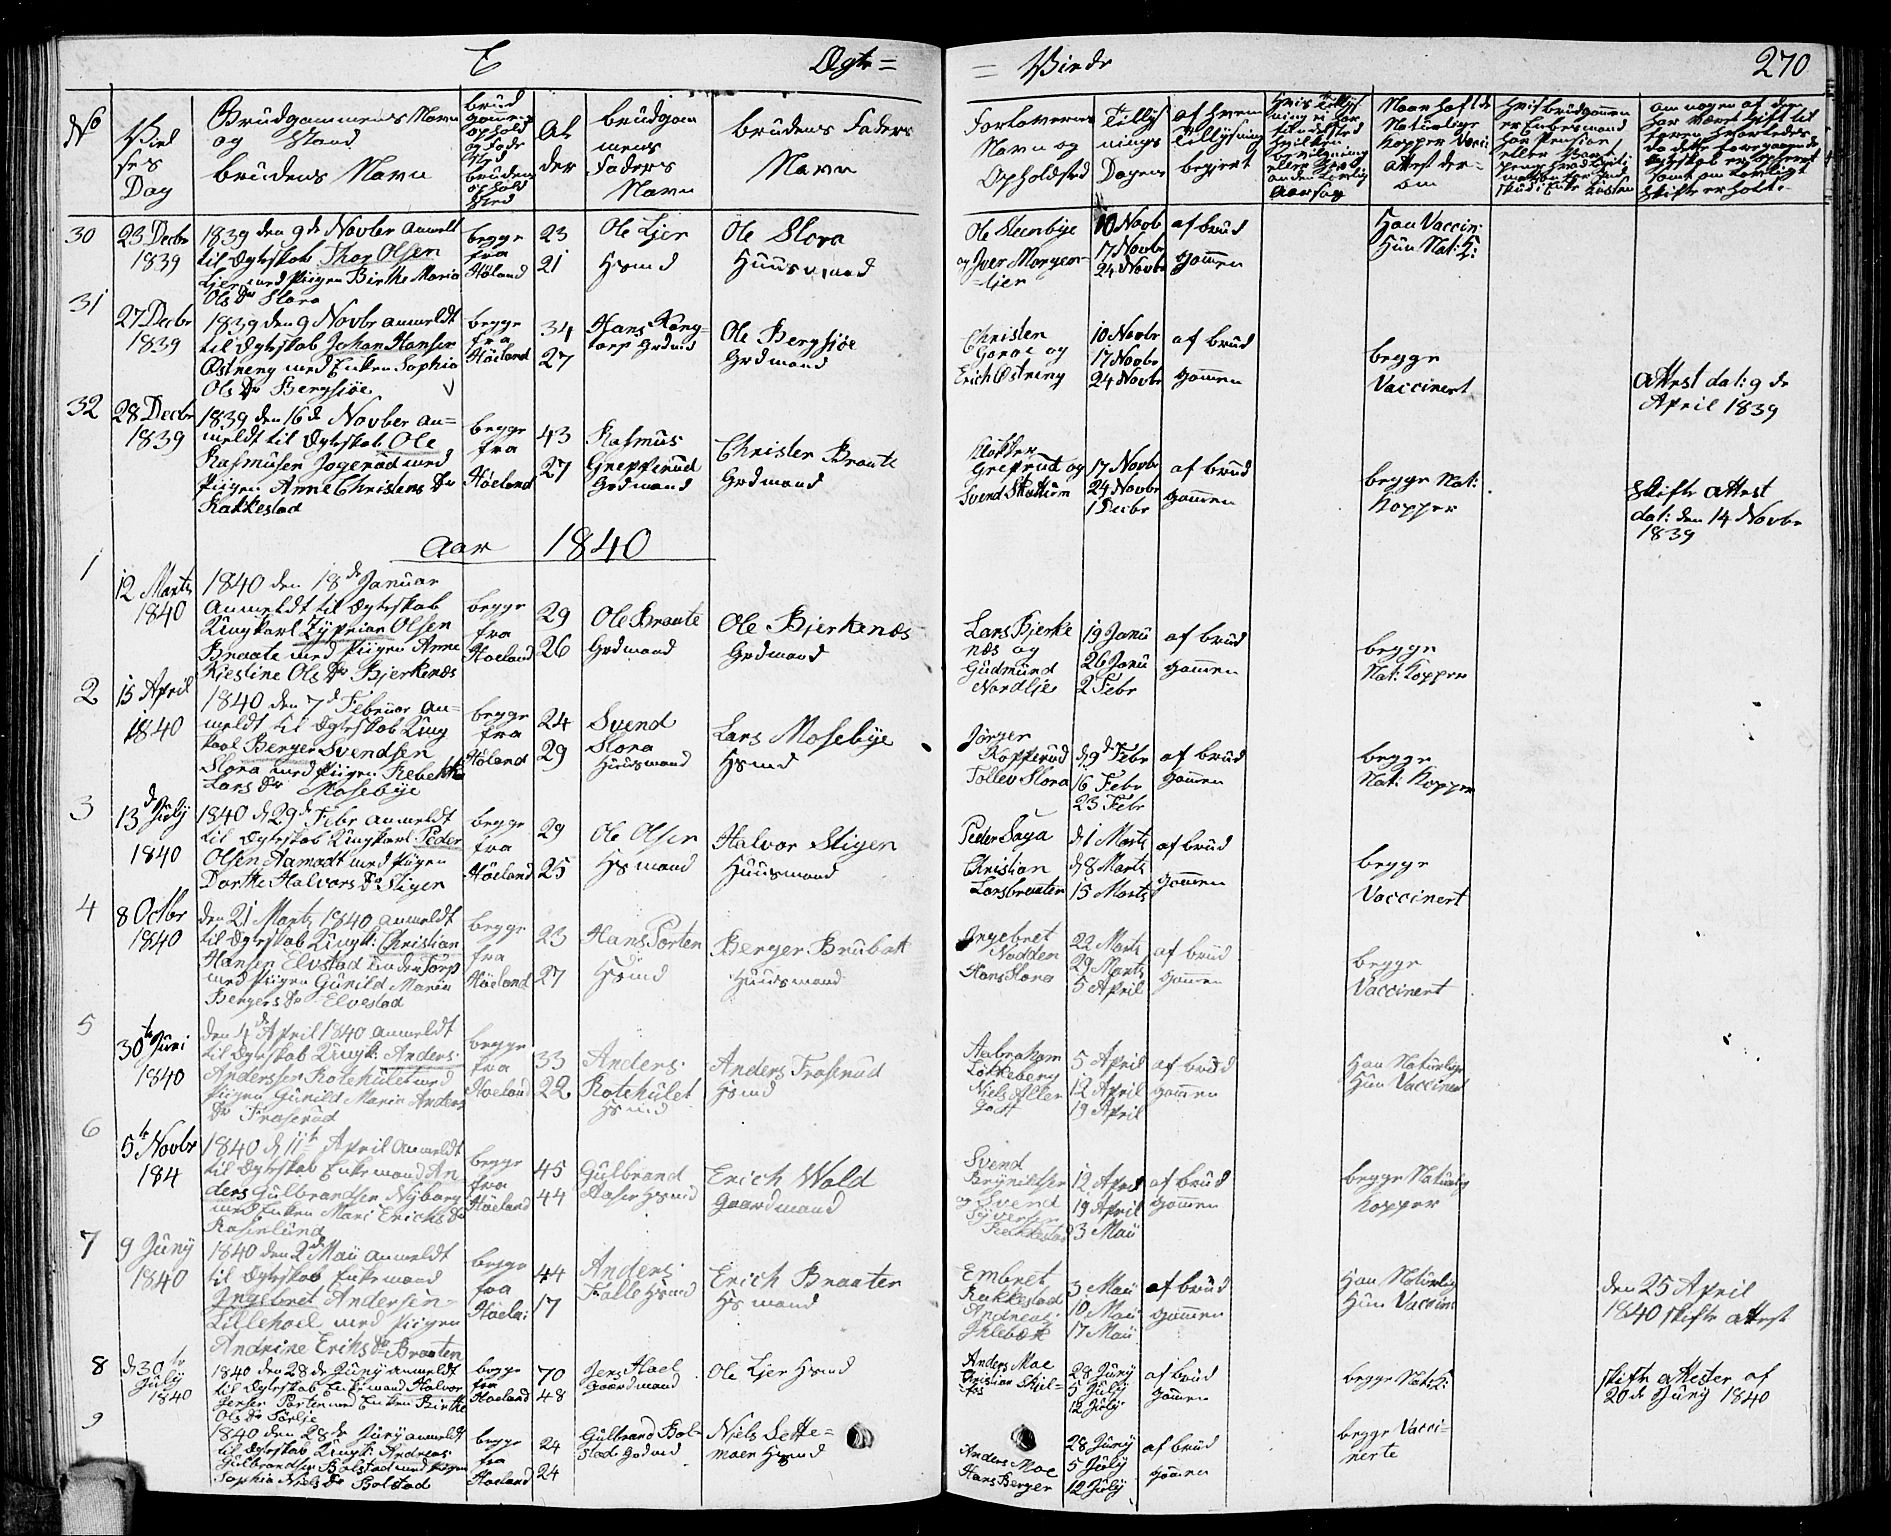 E Ægte=
= Viede 270
No
Viel
ses
Dag
Brudgommens Navn
og Stand
brudens Navn
brud
gommens
ophold
og Føde
sted
brudens
ophold
sted
Al
der
brudgom
mens
Faders
Navn
brudens Faders
Navn
Forlovernes
Navn og
Opholdsted
Tillys
nings
Dagene
af hvem
Tillysning
begjert
Naar hafte
Naturlige
Kopper Vacci
attest der-
om
30
23 Decbr
1839
1839 den 9de Novber anmeldt
til Ægteskab Thor Olsen
Lier med Pigen Birthe Maria
Ols Dr Slora
begge
fra
Høland
23
21
Ole Lier
Hsmd
Ole Slora
Huusmand
Ole Steenbye
og Iver Morgen-
lier
10 Novb
17 Novbr
24 Novbr
af brud
gommen
Han Vaccin:
Hun Nat: K:
31
27 Decbr
1839
1839 den 9 Novbr anmeldt
til Ægteskab Johan Hansen
Østreng med Enken Sophia
Ols Dr Bergsjøe
begge
fra
Høeland
34
27
Hans Kong-
torp Grdmd
Ole Bergsjøe
Grdmand
Christen
Garae og
Erich Østreng
10 Novbr
17 Novbr
24 Novbr
af brud
gommen
begge
Vaccinert
Attest dat: 9 de
April 1839
32
28 Decbr
1839
1839 den 16de Novber an=
meldt til Ægteskab Ole
Rasmusen Jogerød med
Pigen Anne Christens Dr
Kakkestad
begge
fra
Høeland
43
27
Rasmus
Grepperud
Grdmand
Christen Braate
Grdmand
Greprud og
Svend Skattum
17 Novbr
24 Novbr
1 Decbr
af brud
gommen
begge Nat:
Kopper
Skifte Attest
dat: den 14 Novbr
1839
Aar 1840
1
12 Marts
1840
1840 den 18de Januar
Anmeldt til Ægteskab
Ungkarl Zyprian Olsen
Braate med Pigen Anne
Kiestine Ols Dr Bjerkenæs
begge
fra
Høeland
29
26
Ole Braate
Grdmand
Ole Bjerkenæs
Grdmand
Lars Bjerke
næs og
Gudmund
Nordlie
19 Janu
26 Janu
2 Febr
af brud
gommen
begge
Nat: Kopper
2
15 April
1840
1840 den 7d Februar an=
meldt til Ægteskab Ung
karl Berger Svendsen
Slora med Pigen Rebekka
Lars Dr Mosebye
begge
fra
Høland
24
29
Svend
Slora
Huusmand
Lars Mosebye
Hsmd
Jørgen
Kopperud
Tollev Slora
d 9d Febr
16 Febr
23 Febr
af brud
gommen
begge
Nat: Kopper
3
13d July
1840
1840 d 29d Febr anmeldt
til Ægteskab Ungkarl Peder
Olsen Aamodt med Pigen
Dorthe Halvors Dr Stigen
begge
fra
Høeland
29
25
Ole Olsen
Hsmand
Halvor Stigen
Huusmand
Peder Saga
Christian
Larsbraaten
d 1 Marts
d 8 Marts
15 Marts
af brud
gommen
begge
Vaccinert
4
8 Octbr
1840
den 21 Marts 1840 anmeldt
til Ægteskab Ungk: Christian
Hansen Elvstad under Torp
med Pigen Gunild Maria
Bergers Dr Elvestad
begge
fra
Høeland
23
27
Hans Porten
Hsmd
Berger Brubak
Huusmand
Ingebret
Nødden
Hans Slora
22 Marts
29 Marts
5 April
af brud
gommen
begge
Vaccinert
5
30te Juni
1840
den 4de April 1840 anmeldt
til Ægteskab Ungk: Anders
Anderssen Rotehulet med
Pigen Gunild Maria Anders
Dr Fraserud
begge
fra
Høeland
33
22
Anders
Rotehulet
Hsmd
Anders Fraserud
Hsmd
Aabraham
Løkkeberg
Niels Aller
gaft
5 April
12 April
19 April
af brud
gommen
Han Naturlige
Hun Vaccinert
6
5te Novbr
184
1840 d 11te April Anmeldt
til Ægteskab Enkemand An
ders Gulbrandsen Nyborg
med Enken Mari Erichs Dr
Rosenlund
begge
fra
Høeland
45
44
Gulbrand
Aaser Hsmd
Erich Wold
Gaardmand
Svend
Brynildsen
og Svend
Syversen
Kakkestad
12 April
19 April
3 Maii
af brud
gommen
begge Naturlig
Kopper
7
9 Juny
1840
1840 den 2de Maii anmeldt
til Ægteskab Enkemand
Ingebret Andersen
Lillehoel med Pigen
Andrine Eriks Dr Braaten
begge
fra
Høela:
44
17
Anders
Falle Hsmd
Erich Braaten
Hsmand
Embret
Kakkestad
Andreas
Ihlebæk
3 Maii
10 Maii
17 Maii
af brud
gommen
Han Naturlig
Hun Vaccin
den 25 April
1840 Skifte Attest
8
d 30te
July
1840
1840 den 28de Juny anmeldt
til Ægteskab Enkemand Halvor
Jensen Porten med Enken Birthe
Ols Dr Sørlie
begge
fra
Høeland
70
48
Jens Hael
Gaardmand
Ole Lier Hsmd
Anders Moe
Christian Skjel-
fos
28 Juny
5 July
12 July
af brud
gommen
begge Nat: K:
Skifte Attester af
20de Juny 1840
9
1840 den 28de Juny anmeldt
til Ægteskab Ungk: Andreas
Gulbrandsen Bolstad med Pigen
Sophia Niels Dr Bolstad
begge
fra
Høeland
24
24
Gulbrand Bol-
stad Grdmd
Niels Sette-
moen Hsmd
Anders Moe
Hans Berger
28 Juny
5 July
12 July
af brud
gommen
begge Vacci-
nerte